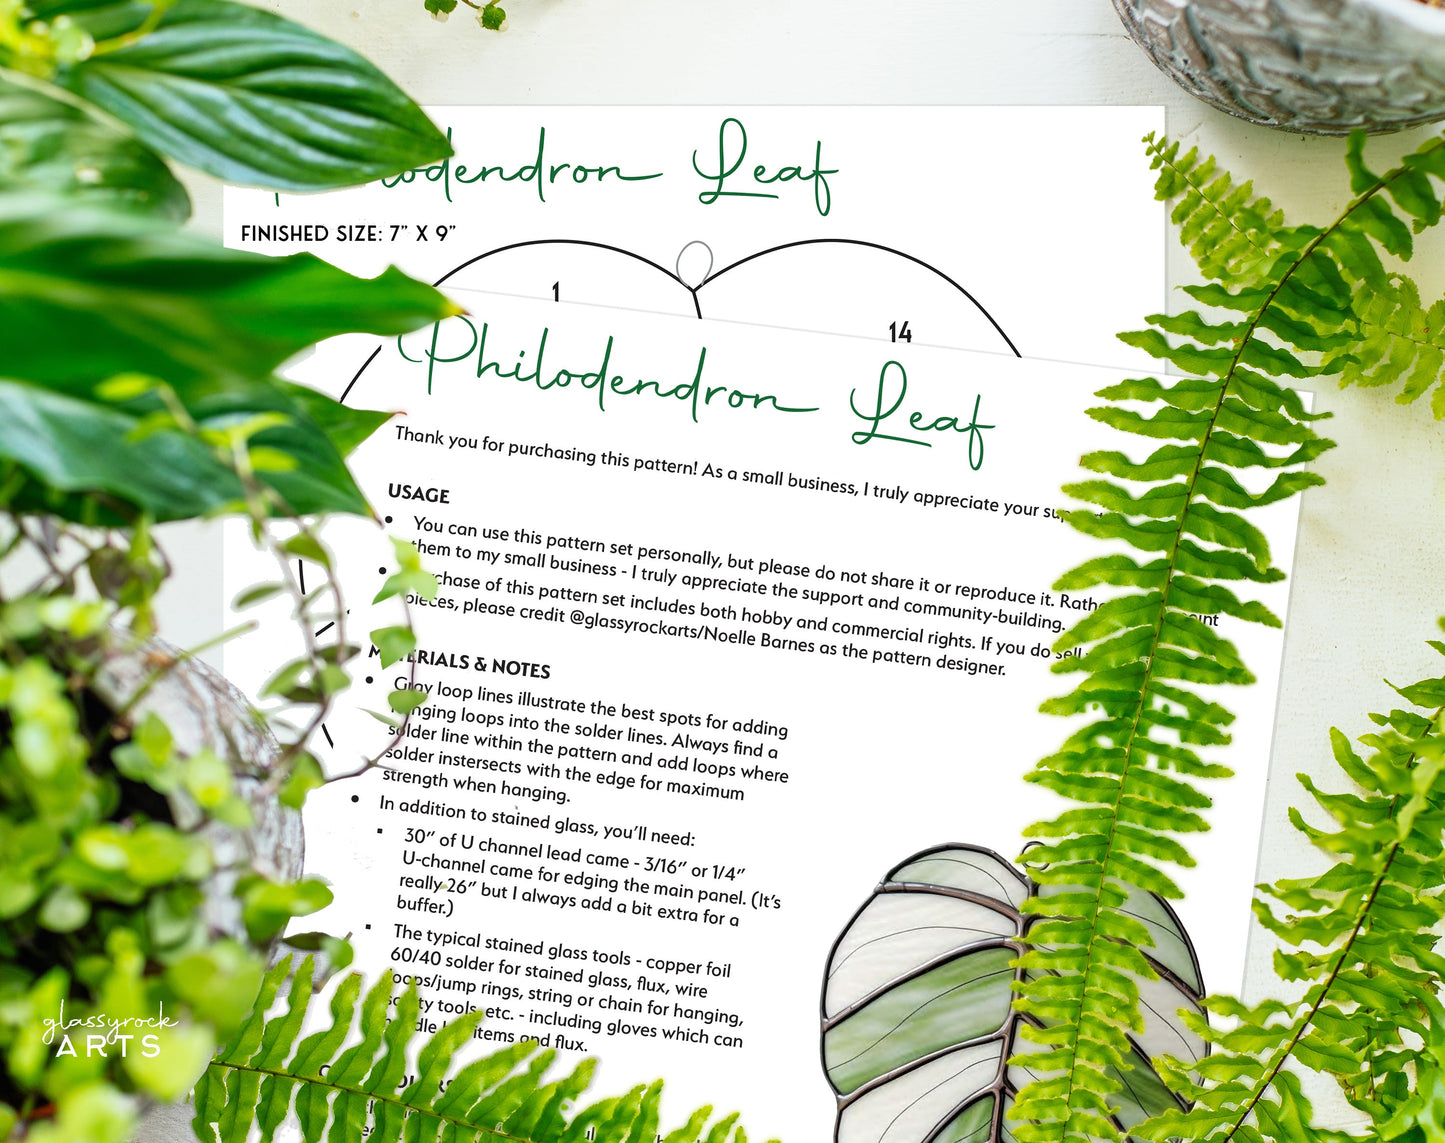 Leaf
FINISHED SIZE: 7" X 9"
1
14
Philodendron Leaf
Thank you for purchasing this pattern! As a small business, I truly appreciate your
USAGE
• You can use this pattern set personally, but please do not share it or reproduce it.
them to my small business - I truly appreciate the support and community-building.
• of this pattern set includes both hobby and commercial rights. If you do sell
pieces, please credit @glassyrockarts/Noelle Barnes as the pattern designer.
& NOTES
• Gray loop lines illustrate the best spots for adding
hanging loops into the solder lines. Always find a
solder line within the pattern and add loops where
solder instersects with the edge for maximum
strength when hanging.
• In addition to stained glass, you'll need:
▪ 30" of U channel lead came - 3/16" or 1/4"
U-channel came for edging the main panel. (It's
really 26" but I always add a bit extra for a
buffer.)
▪ The typical stained glass tools - copper foil
60/40 solder for stained glass, flux, wire
loops/jump rings, string or chain for hanging,
tools, etc. - including gloves which can
items and flux.
glassyrock
ARTS